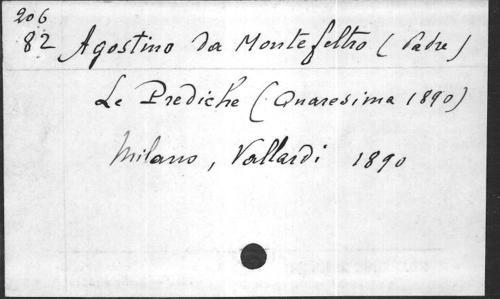 206
82 Agostino da Montefeltro (Padre)
Le Prediche (Quaresima 1890)
Milano, Vallardi 1890